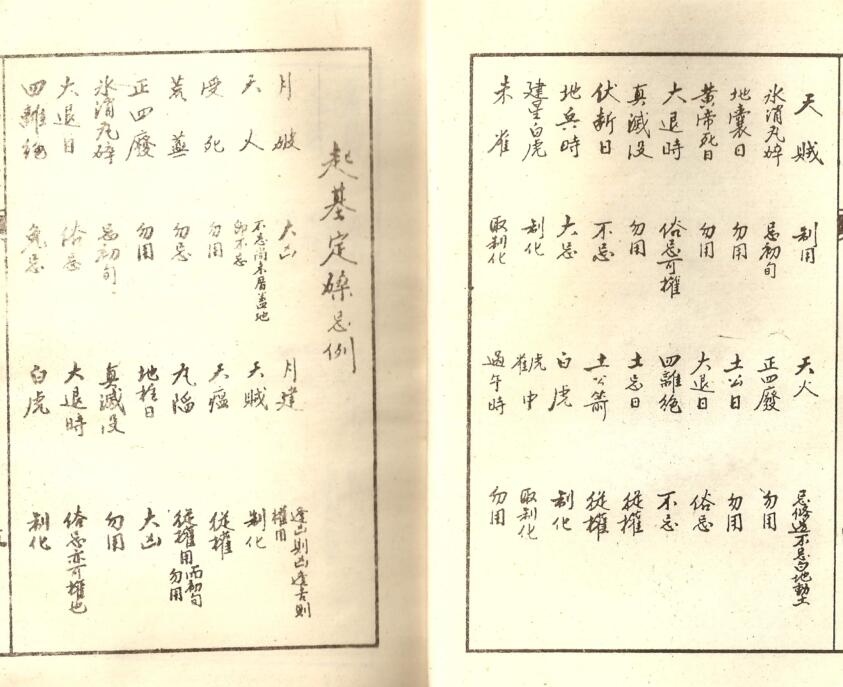 天賊 制用 天火 忌修造不忌白地動土
氷消丸碎 忌初旬 正四廢 勿用
地囊日 勿用 土公日 勿用
黃帝死日 勿用 大退日 俗忌
大退時 俗忌可權 四離絕 不忌
真滅没 勿用 土忌日 從權
伏斷日 不忌 土公箭 從權
地兵時 大忌 白虎 制化
建星白虎 制化 虎中雀 取制化
朱雀 取制化 過午時 勿用
起基定磉忌例
月破 大凶 月建 逢凶則凶逢吉則權用
天火 不忌尚未 蓋地即不忌 天賊 制化
受死 勿用 天瘟 從權
荒蕪 勿忌 九陷 從權用而初旬勿用
正四廢 勿用 地柱日 大凶
氷消丸碎 忌初旬 真滅没 勿用
大退日 俗忌 大退時 俗忌亦可權也
四離絕 免忌 白虎 制化